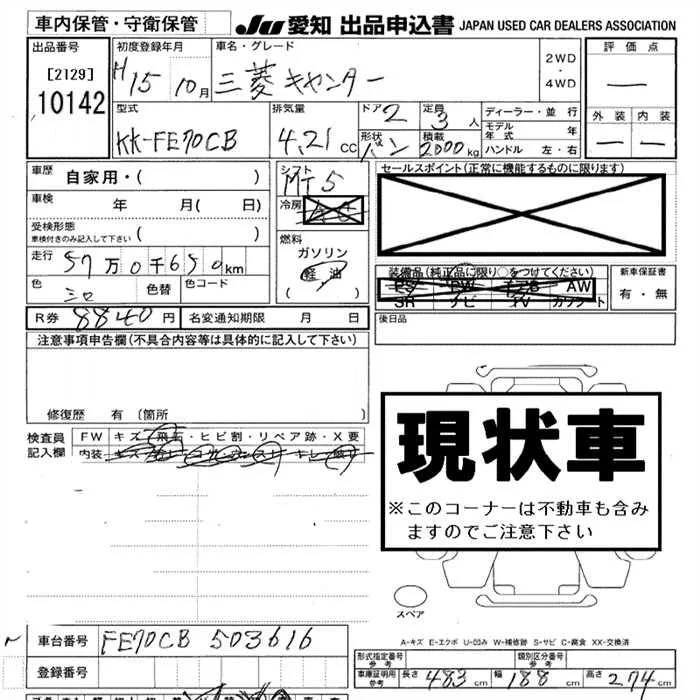 車内保管・守衛保管 JU 愛知 出品申込書 JAPAN USED CAR DEALERS ASSOCIATION
出品番号 初度登録年月 車名・グレード 2WD ・ 4WD 評価点
[2129] H15 10月 三菱キャンター ―
10142 型式 排気量 ドア 定員 ディーラー・並行 外装 内装
KK-FE70CB 4.21cc 2 3人 モデル年式 年
形状 バン 積載 2000kg ハンドル 左・右 ― ―
車歴 自家用・( ) シフト MT5 セールスポイント(正常に機能するものに限ります)
車検 年 月( 日) 冷房
受検形態 車検付きのみ記入して下さい ( ) 燃料
走行 57万0千650km ガソリン
色 シロ 色替 色コード ( 軽油 )
装備品(純正品に限り○をつけてください) 新車保証書
PS PW AW 有・無
SR ナビ TV
R券 8840円 名変通知期限 月 日 後日品
注意事項申告欄(不具合内容等は具体的に記入して下さい)
修復歴 有 〔箇所
検査員記入欄 FW キズ・飛石・ヒビ割・リペア跡・X要
内装
現状車
※このコーナーは不動車も含みますのでご注意下さい
スペア
A-キズ E-エクボ U-凹み W-補修跡 S-サビ C-腐食 XX-交換済
車台番号 FE70CB 503616
登録番号
形式指定番号 参考 類別区分番号 参考
車庫証明用 参考 長さ 483cm 幅 188cm 高さ 274cm